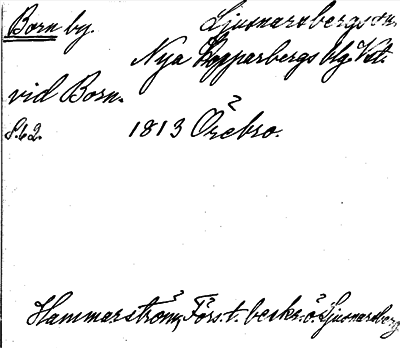 Born by. Ljusnarsbergs sn.
Nya Kopparbergs blg. Vet.
vid Born.
S. 62. 1813 Örebro.
Hammarström, Förs. t. beskr. ö. Ljusnarsberg